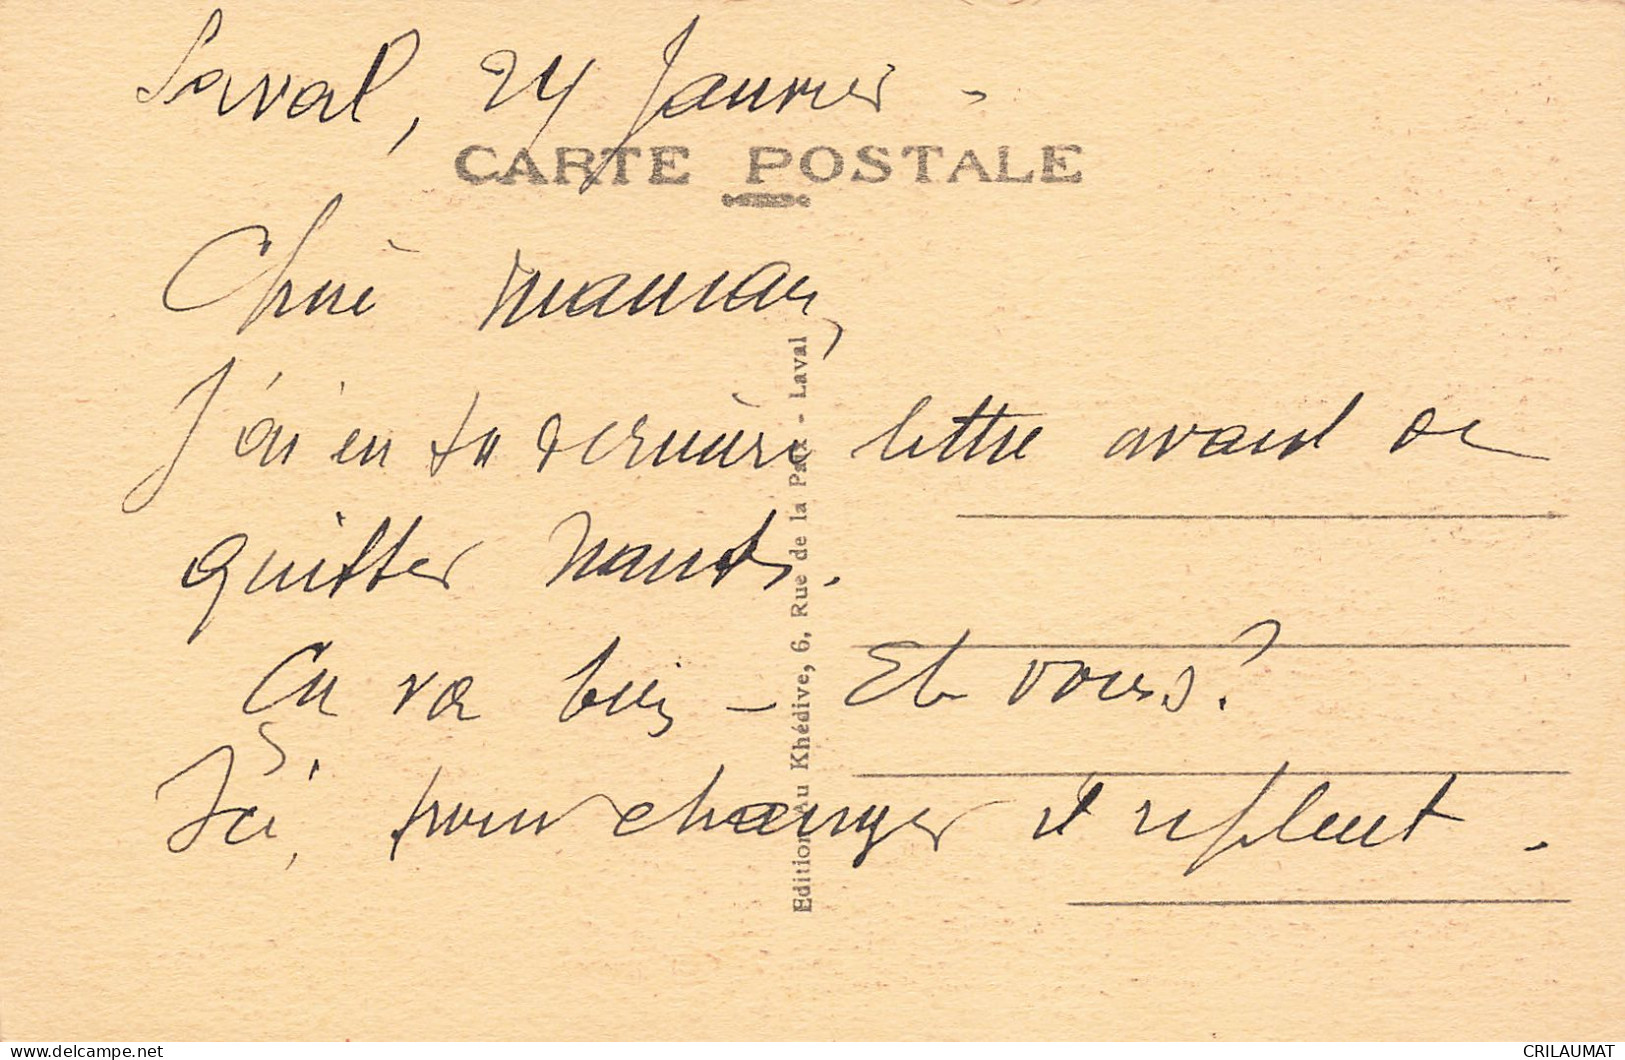 Laval, 24 Janvier -
CARTE POSTALE
Chère maman,
J'ai eu ta dernière lettre avant de
quitter Nantes.
Ça va bien - Et vous ?
Ici, pour changer il repleut.
Edition Au Khédive, 6, Rue de la Paix - Laval
delcampe.net
CRILAUMAT